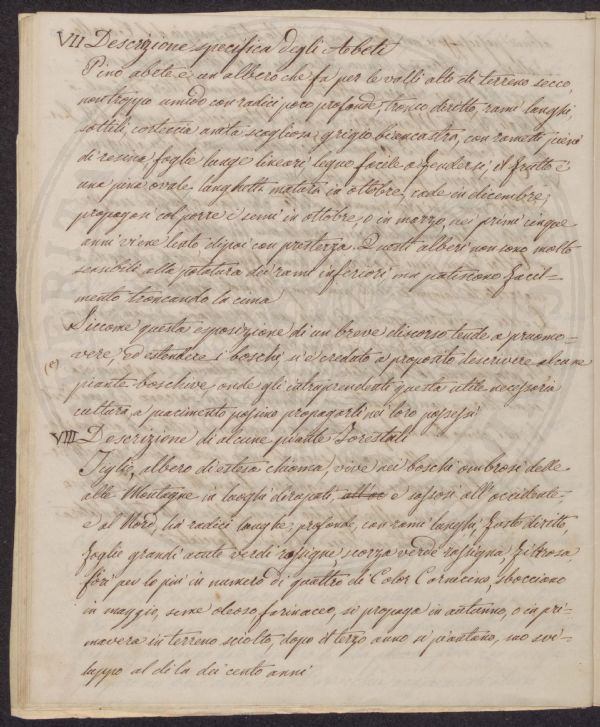 VII Descrizione specifica degli Abeti
Pino abete è un albero che fa per le valli alte di terreno secco,
non troppo umido con radici poco profonde, tronco diritto, rami langhi,
sottili, corteccia unita scagliosa grigio biancastra, con rametti pieni
di resina foglie lunge lineari legno facile a fendersi, il frutto è
una pina ovale langhetta matura in ottobre, cade in decembre;
propagasi col porre i semi in ottobre, o in marzo, nei primi cinque
anni viene lento dipoi con prestezza. Questi alberi non sono molto
sensibili alla potatura dei rami inferiori ma patiscono facil-
mente troncando la cima
Siccome questa esposizione di un breve discorso tende a pruomo-
vere, ed estendere i boschi si è creduto a proposito descrivere alcune
piante boschive, onde gli intraprendenti questa utile necessaria
cultura, a piacimento possino propagarli nei loro possessi
VIII Descrizione di alcune piante Forestali
Tiglio, albero di estesa chioma, vive nei boschi ombrosi delle
alte Montagne in luoghi dirupati, e sassosi all'occidente,
e al Nord, ha radici langhe, profonde, con rami langhi, fusto diritto,
foglie grandi acute verdi rossigne, scorza verde rossigna, filtrosa,
fiori per lo più in numero di quattro di Color Carnicino, sbocciono
in maggio, seme oleoso farinaceo, si propaga in autunno, o in pri-
mavera in terreno sciolto, dopo il terzo anno si piantano, suo svi-
luppo al di la dei cento anni